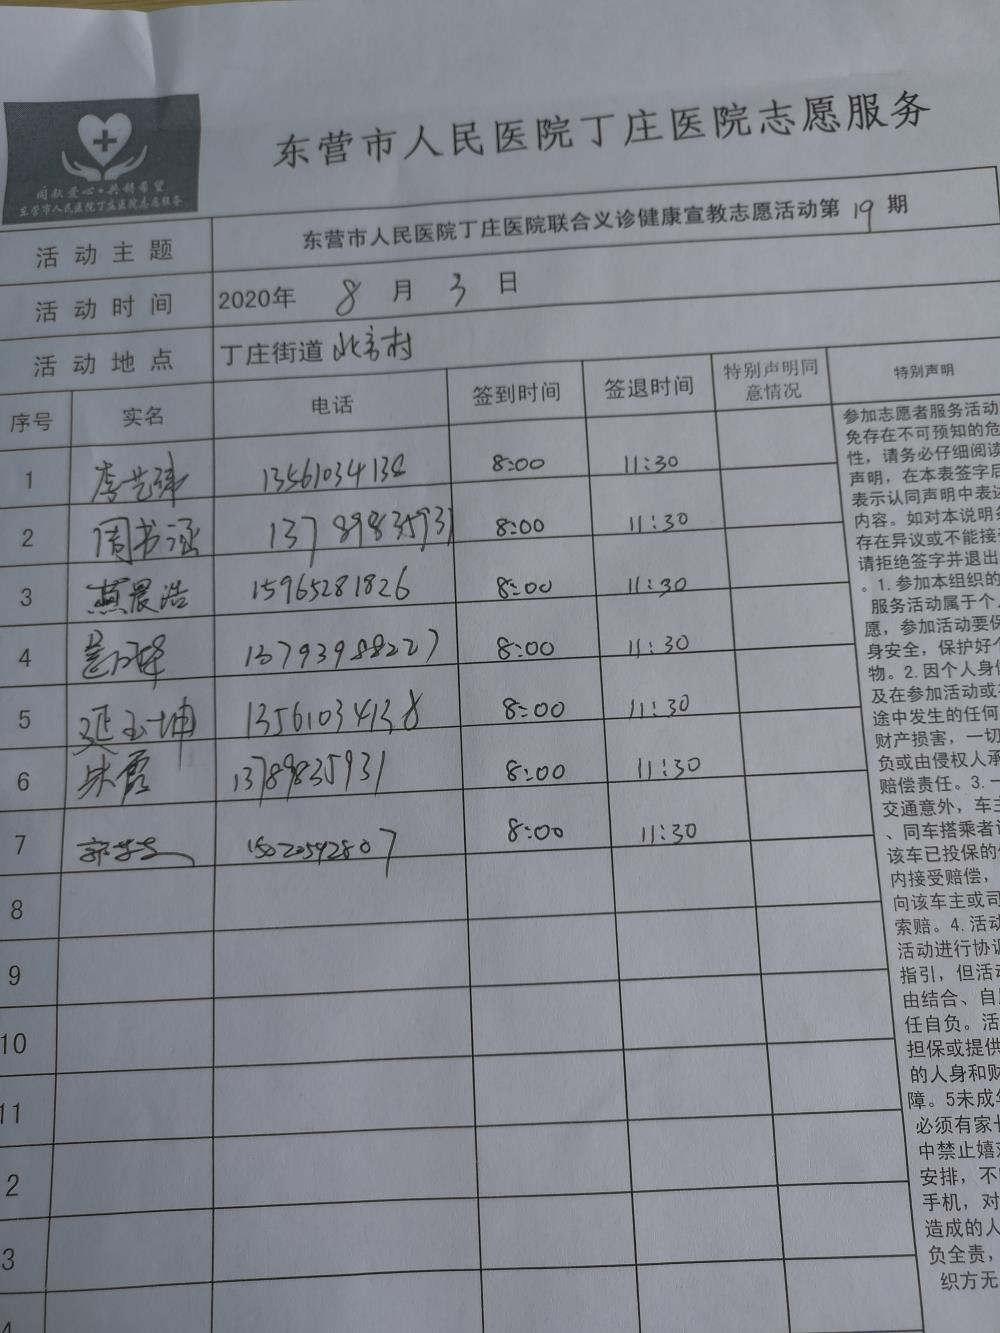 东营市人民医院丁庄医院志愿服务
东营市人民医院丁庄医院志愿服务
活动主题 东营市人民医院丁庄医院联合义诊健康宣教志愿活动第 19 期
活动时间 2020年 8 月 3 日
活动地点 丁庄街道
序号 实名 电话 签到时间 签退时间 特别声明同意情况 特别声明
1 13561034138 8:00 11:30
2 周书涵 13789835931 8:00 11:30
3 燕晨浩 15965281826 8:00 11:30
4 13793988227 8:00 11:30
5 延玉坤 13561034138 8:00 11:30
6 朱霞 13789835931 8:00 11:30
7 15020592807 8:00 11:30
8
9
10
11
2
3
4
参加志愿者服务活动
免存在不可预知的危
性，请务必仔细阅读
声明，在本表签字后
表示认同声明中表述
内容。如对本说明
存在异议或不能接
请拒绝签字并退出
。1.参加本组织的
服务活动属于个
愿，参加活动要保
身安全，保护好个
物。2.因个人身
及在参加活动或
途中发生的任何
财产损害，一切
负或由侵权人承
赔偿责任。3.一
交通意外，车主
、同车搭乘者
该车已投保的
内接受赔偿，
向该车主或司
索赔。4.活动
活动进行协调
指引，但活动
由结合、自
任自负。活
担保或提供
的人身和财
障。5未成年
必须有家长
中禁止嬉
安排，不
手机，对
造成的人
负全责，
织方无